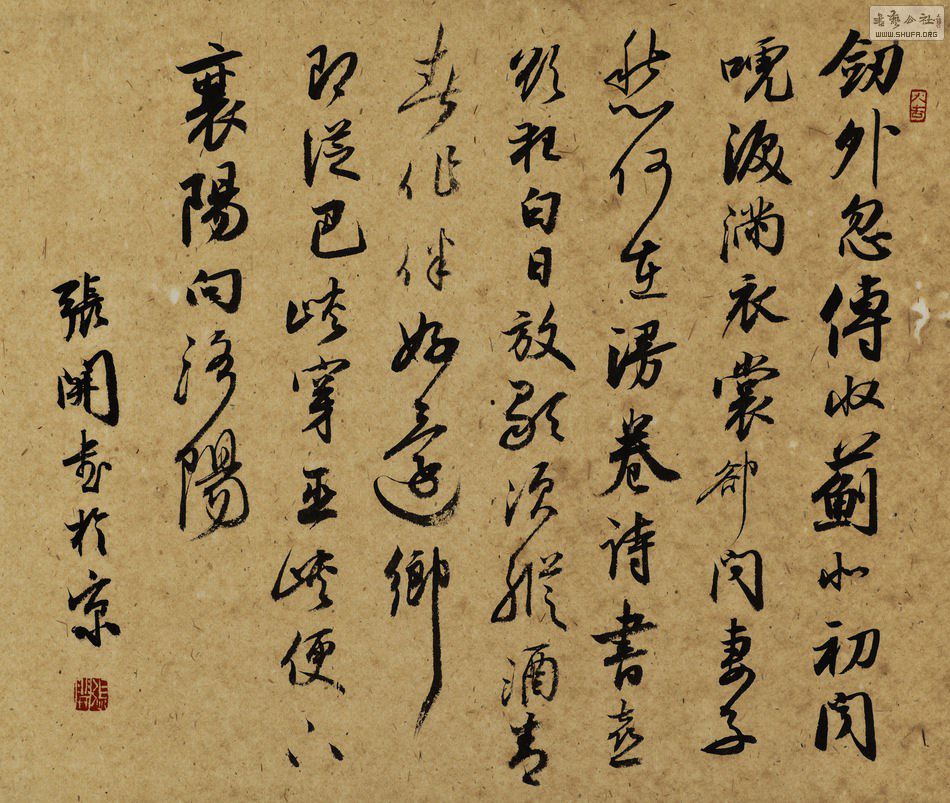 劒外忽傳收薊北初聞
淚滿衣裳卻問妻子
愁何在漫卷詩書喜
欲狂白日放歌須縱酒青
春作伴好還鄉
即從巴峽穿巫峽便下
襄陽向洛陽
張開書於京
WWW.SHUFA.ORG